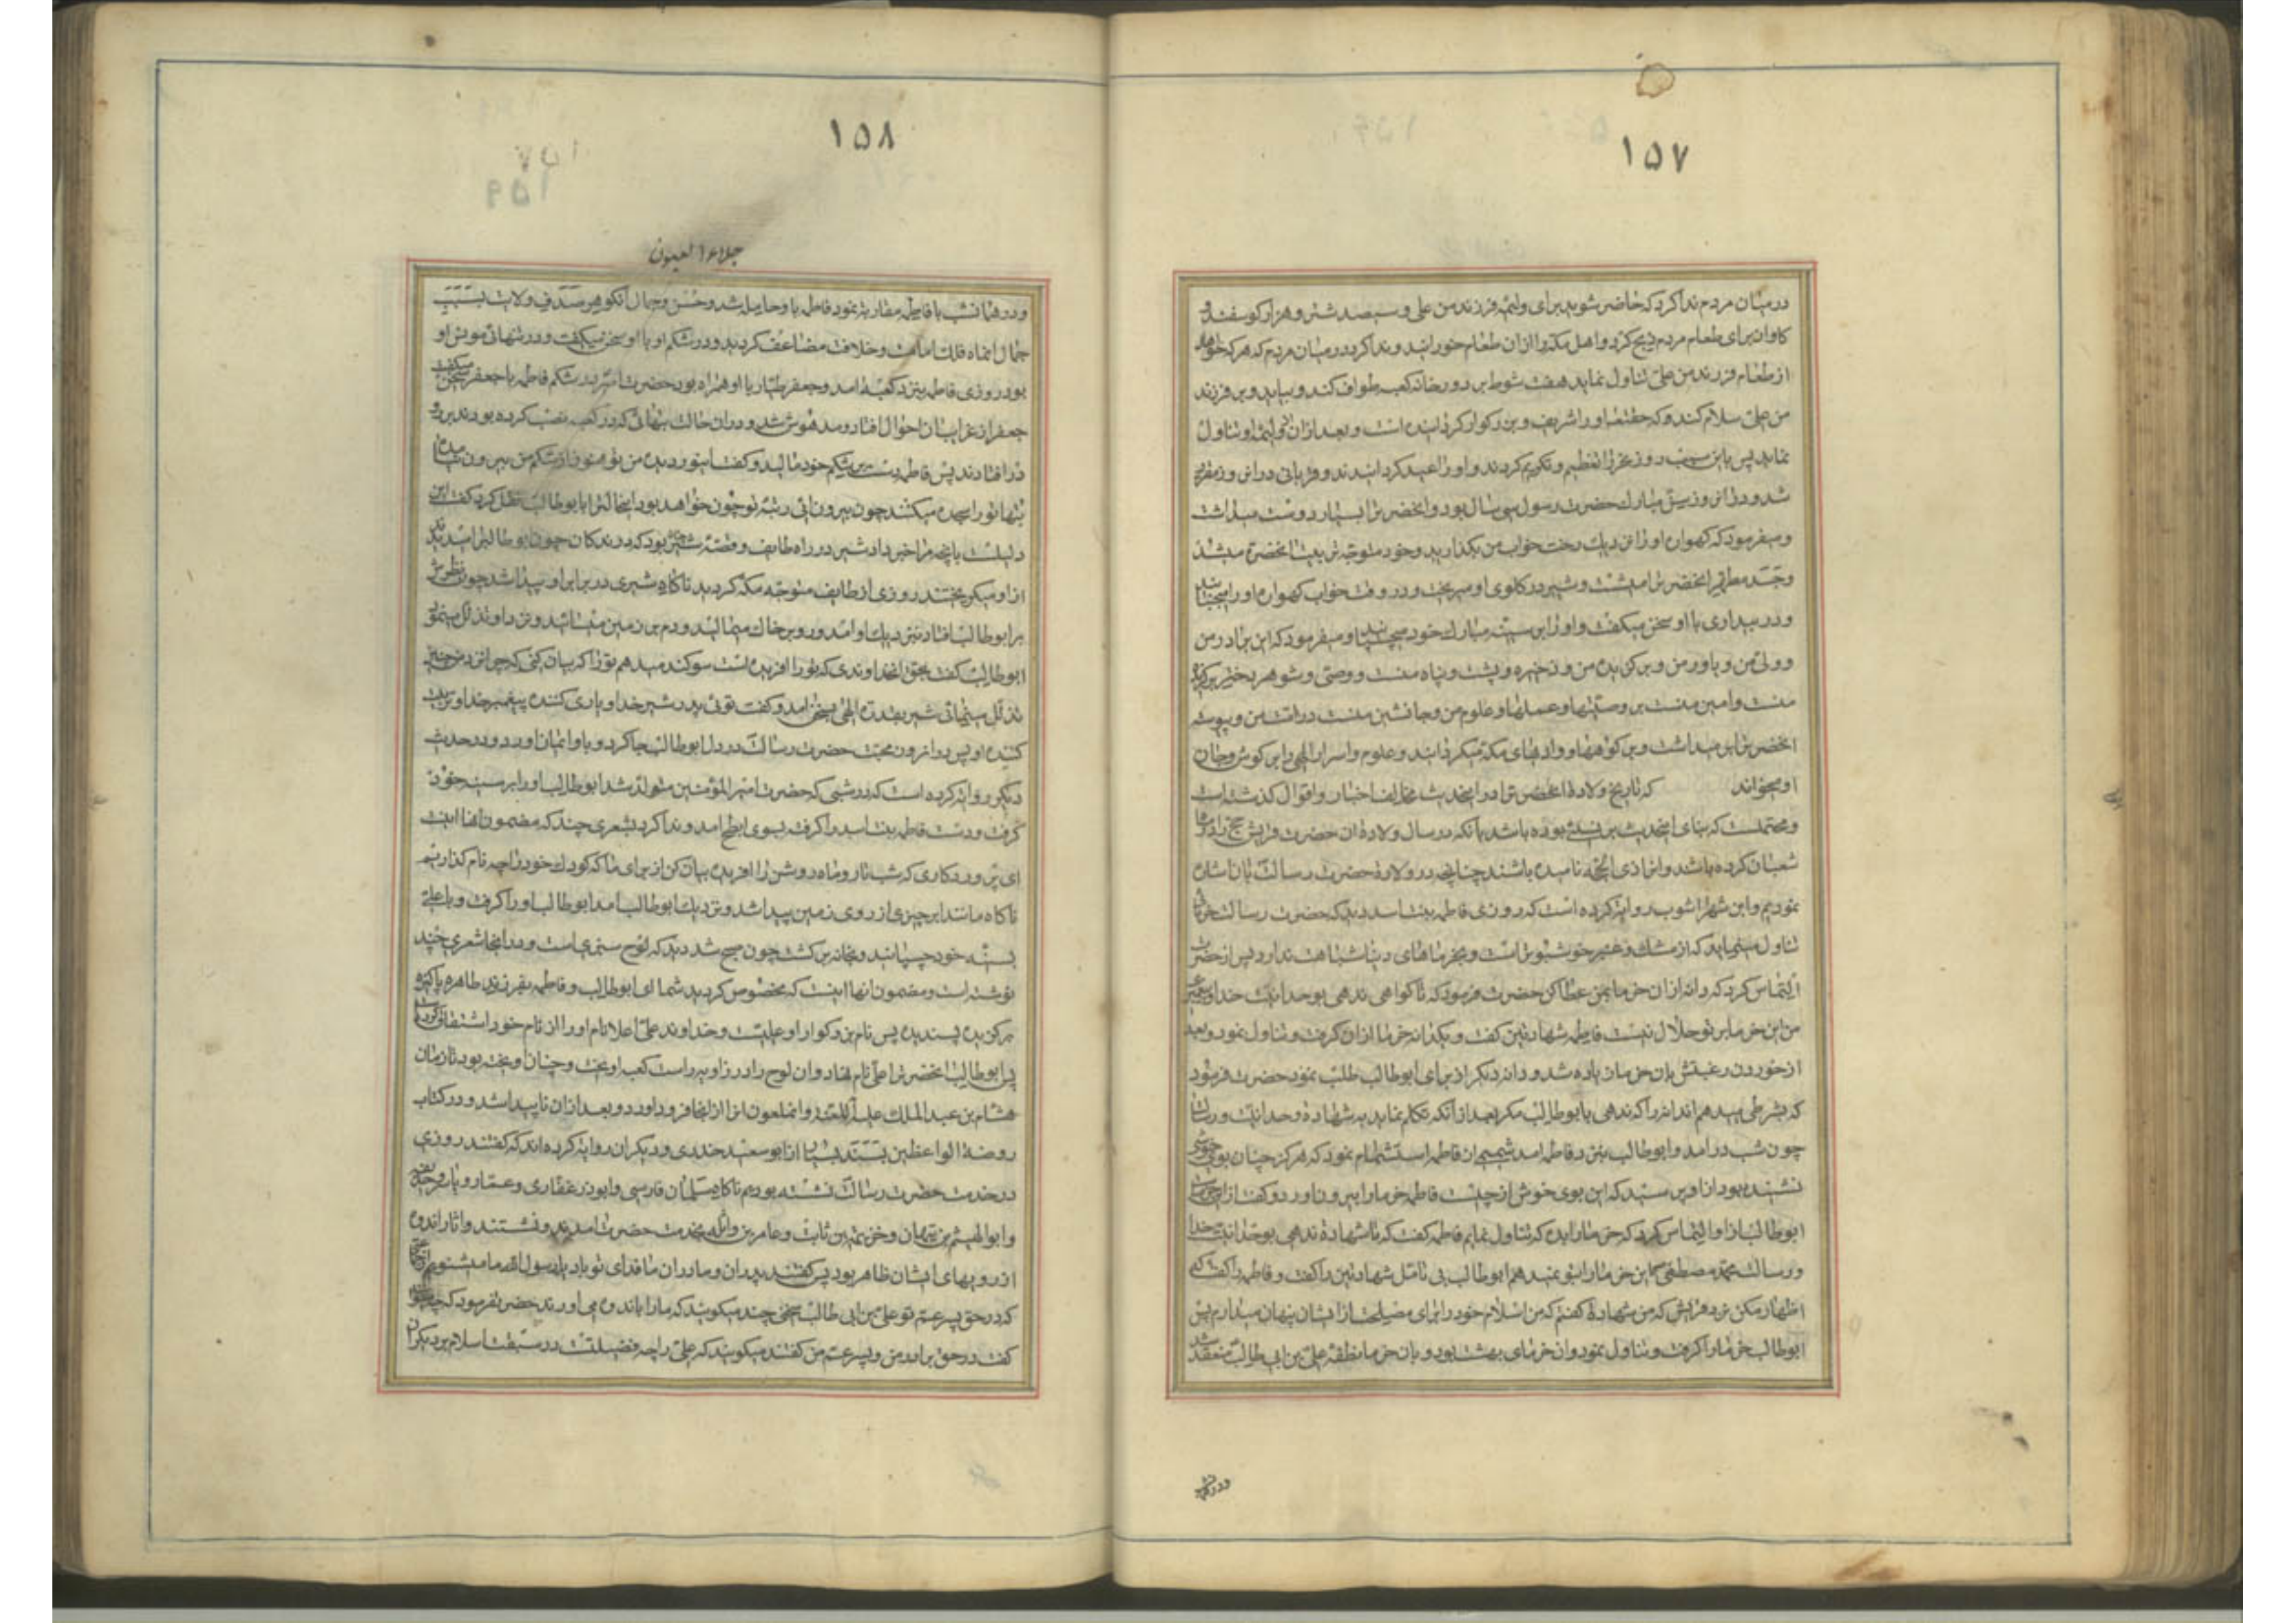 ۱۵۷
در میان مردم ندا کرد که حاضر شوید برای ولیمه فرزند من علی و سیصد شتر و هزار کوسفند و
کاوان برای طعام مردم ذبح کرد و اهل مکه را از ان طعام خورانید و ندا کرد در میان مردم که هر که خواهد
از طعام فرزند من علی تناول نماید هفت شوط بر دور خانه کعبه طواف کند و بیاید و بر فرزند
من علی سلام کند و که حقتعالی او را شریف و بزرکوار کردانیده است و بعد از ان از ولیمه او تناول
نماید پس باین سبب روز نحر را تعظیم و تکریم کردند و او را عید کردانیدند و قربانی در این روز مقرر
شد و در ان روز سن مبارک حضرت رسول سی سال بود و انحضرت را بسیار دوست میداشت
و میفرمود که کهواره او را نزدیک رخت خواب من بکذارید و خود متوجه تربیت انحضرت میشد
و جسد مطهر انحضرت را میشست و شیر در کلوی او میریخت و در وقت خواب کهواره او را میجنبانید
و در بیداری با او سخن میکفت و او را بر سینه مبارک خود میچسبانید و میفرمود که این برادر من
و ولی من و یاور من و برکزیده من و ذخیره و پشت و پناه منست و وصی و شوهر دختر برکزیده
منست و امین منست بر وصیتها و عملها و علوم من و جانشین منست در امت من و پیوسته
انحضرت را بر میداشت و بر کوهها و وادیهای مکه میکردانید و علوم و اسرار الهی را بر کوش و جان
او میخواند که تاریخ ولادة انحضرت در اینحدیث مخالف اخبار و اقوال کذشته است
و محتملست که بنای اینحدیث بر نسئ بوده باشد بانکه در سال ولادة ان حضرت قریش حج را در ماه
شعبان کرده باشند و انرا ذی الحجه نامیده باشند چنانچه در ولادة حضرت رسالت بان اشاره
نمودیم و ابن شهراشوب روایة کرده است که روزی فاطمه بنت اسد دید که حضرت رسالت خرمائی
تناول مینماید که از مشک و عنبر خوشبوتر است و بخرماهای دنیا شباهت ندارد پس از حضرت
التماس کرد که دانه از ان خرما بمن عطا کن حضرت فرمود که تا کواهی ندهی بوحدانیت خدا و پیغمبری
من این خرما بر تو حلال نیست فاطمه شهادتین کفت و یکدانه خرما از ان کرفت و تناول نمود و بعد
از خوردن رغبتش بان خرما زیاده شد و دانه دیکر از برای ابو طالب طلب نمود حضرت فرمود
که بشرطی میدهم اندانه را که ندهی بابو طالب مکر بعد از انکه تکلم نماید به شهادة وحدانیت و رسالت
چون شب در امد و ابو طالب بنزد فاطمه امد شمیمی از فاطمه استشمام نمود که هرکز چنان بوی خوشی
نشنیده بود از او پرسید که این بوی خوش از چیست فاطمه خرما را بیرون اورد و کفت از این خرماست
ابو طالب از او التماس کرد که خرما را بده که تناول نمایم فاطمه کفت که تا شهادة ندهی بوحدانیت خدا
و رسالت محمد مصطفی این خرما را بتو نمیدهم ابو طالب بی تامل شهادتین را کفت و فاطمه را کفت که
اظهار مکن نزد قریش که من شهادة کفتم که من اسلام خود را برای مصلحت از ایشان پنهان میدارم پس
ابو طالب خرما را کرفت و تناول نمود و ان خرمای بهشت بود و بان خرما نطفه علی بن ابی طالب منعقد شد
۱۵۸
جلاء العیون
و در همانشب با فاطمه مقاربة نمود فاطمه باو حامله شد و حسن و جمال انکوهر صدف ولایت بسبب
جمال انماه فلک امامت و خلافت مضاعف کردید و در شکم او با او سخن میکفت و در تنهائی مونس او
بود روزی فاطمه بنزد کعبه امد و جعفر طیار با او همراه بود حضرت امیر در شکم فاطمه با جعفر سخن میکفت
جعفر از غرایب ان احوال افتاد و مدهوش شد و در ان حالت بتهائی که در کعبه نصب کرده بودند بر رو
در افتادند پس فاطمه دست بر شکم خود مالید و کفت ای نور دیده من تو هنوز از شکم من بیرون نیامده
بتها تو را سجده میکنند چون بیرون ائی رتبه تو چون خواهد بود اینحالت را بابو طالب نقل کرد کفت این
دلیلست بانچه مرا خبر داد شیر در راه طایف و قصه شیر چنان بود که درندکان چون ابو طالب را میدیدند
از او میکریختند روزی از طایف متوجه مکه کردید ناکاه شیری در برابر او پیدا شد چون نظرش
بر ابو طالب افتاد نزدیک او امد و رو بر خاک میمالید و دم بر زمین میسائید و نزد او تذلل مینمود
ابو طالب کفت بحق انخداوندی که تو را افریده است سوکند میدهم تو را که بیان کنی که چرا نزد من چنین
تذلل مینمائی شیر بقدرت الهی بسخن امد و کفت توئی پدر شیر خدا و یاری کننده پیغمبر خدا و تربیت
کننده او پس در انروز محبت حضرت رسالت در دل ابو طالب جا کرد و باو ایمان اورد و در حدیث
دیکر روایة کرده است که در شبی که حضرت امیر المؤمنین متولد شد ابو طالب او را بر سینه خود
کرفت و دست فاطمه بنت اسد را کرفت بسوی ابطح امد و ندا کرد بشعری چند که مضمون انها اینست
ای پروردکاری که شب تار و ماه روشن را افریده بیان کن از برای ما که کودک خود را چه نام کذاریم
ناکاه مانند ابر چیزی از روی زمین پیدا شد و نزدیک ابو طالب امد ابو طالب او را کرفت و با علی
بسینه خود چسپانید و بخانه برکشت چون صبح شد دید که لوح سبزی است و در انجا شعری چند
نوشته است و مضمون انها اینست که مخصوص کردیدید شما ای ابو طالب و فاطمه بفرزند طاهره پاکیزه
برکزیده پسندیده پس نام بزرکوار او علیست و خداوند علی اعلا نام او را از نام خود اشتقاق کرده
پس ابو طالب انحضرت را علی نام نهاد و ان لوح را در زاویه راست کعبه اویخت و چنان اویخته بود تا زمان
هشام بن عبد الملک علیه اللعنه و انملعون انرا از انجا فرود اورد و بعد از ان ناپیدا شد و در کتاب
روضة الواعظین بسند بسیار از ابو سعید خدری و دیکران روایة کرده اند که کفتند روزی
در خدمت حضرت رسالت نشسته بودیم ناکاه سلمان فارسی و ابوذر غفاری و عمار و یاسر و حذیفه
و ابو الهیثم بن تیهان و خزیمه بن ثابت و عامر بن واثله بخدمت حضرت امدند و نشستند و اثار اندوه
از رویهای ایشان ظاهر بود پس کفتند پدران و مادران ما فدای تو باد یا رسول الله ما میشنویم از جماعتی
که در حق پسر عم تو علی بن ابی طالب سخنی چند میکویند که ما را باندوه می اورند حضرت فرمود که چه
کفت در حق برادر من و پسر عم من کفتند میکویند که علی را چه فضیلت است در سبقت اسلام بر دیکران